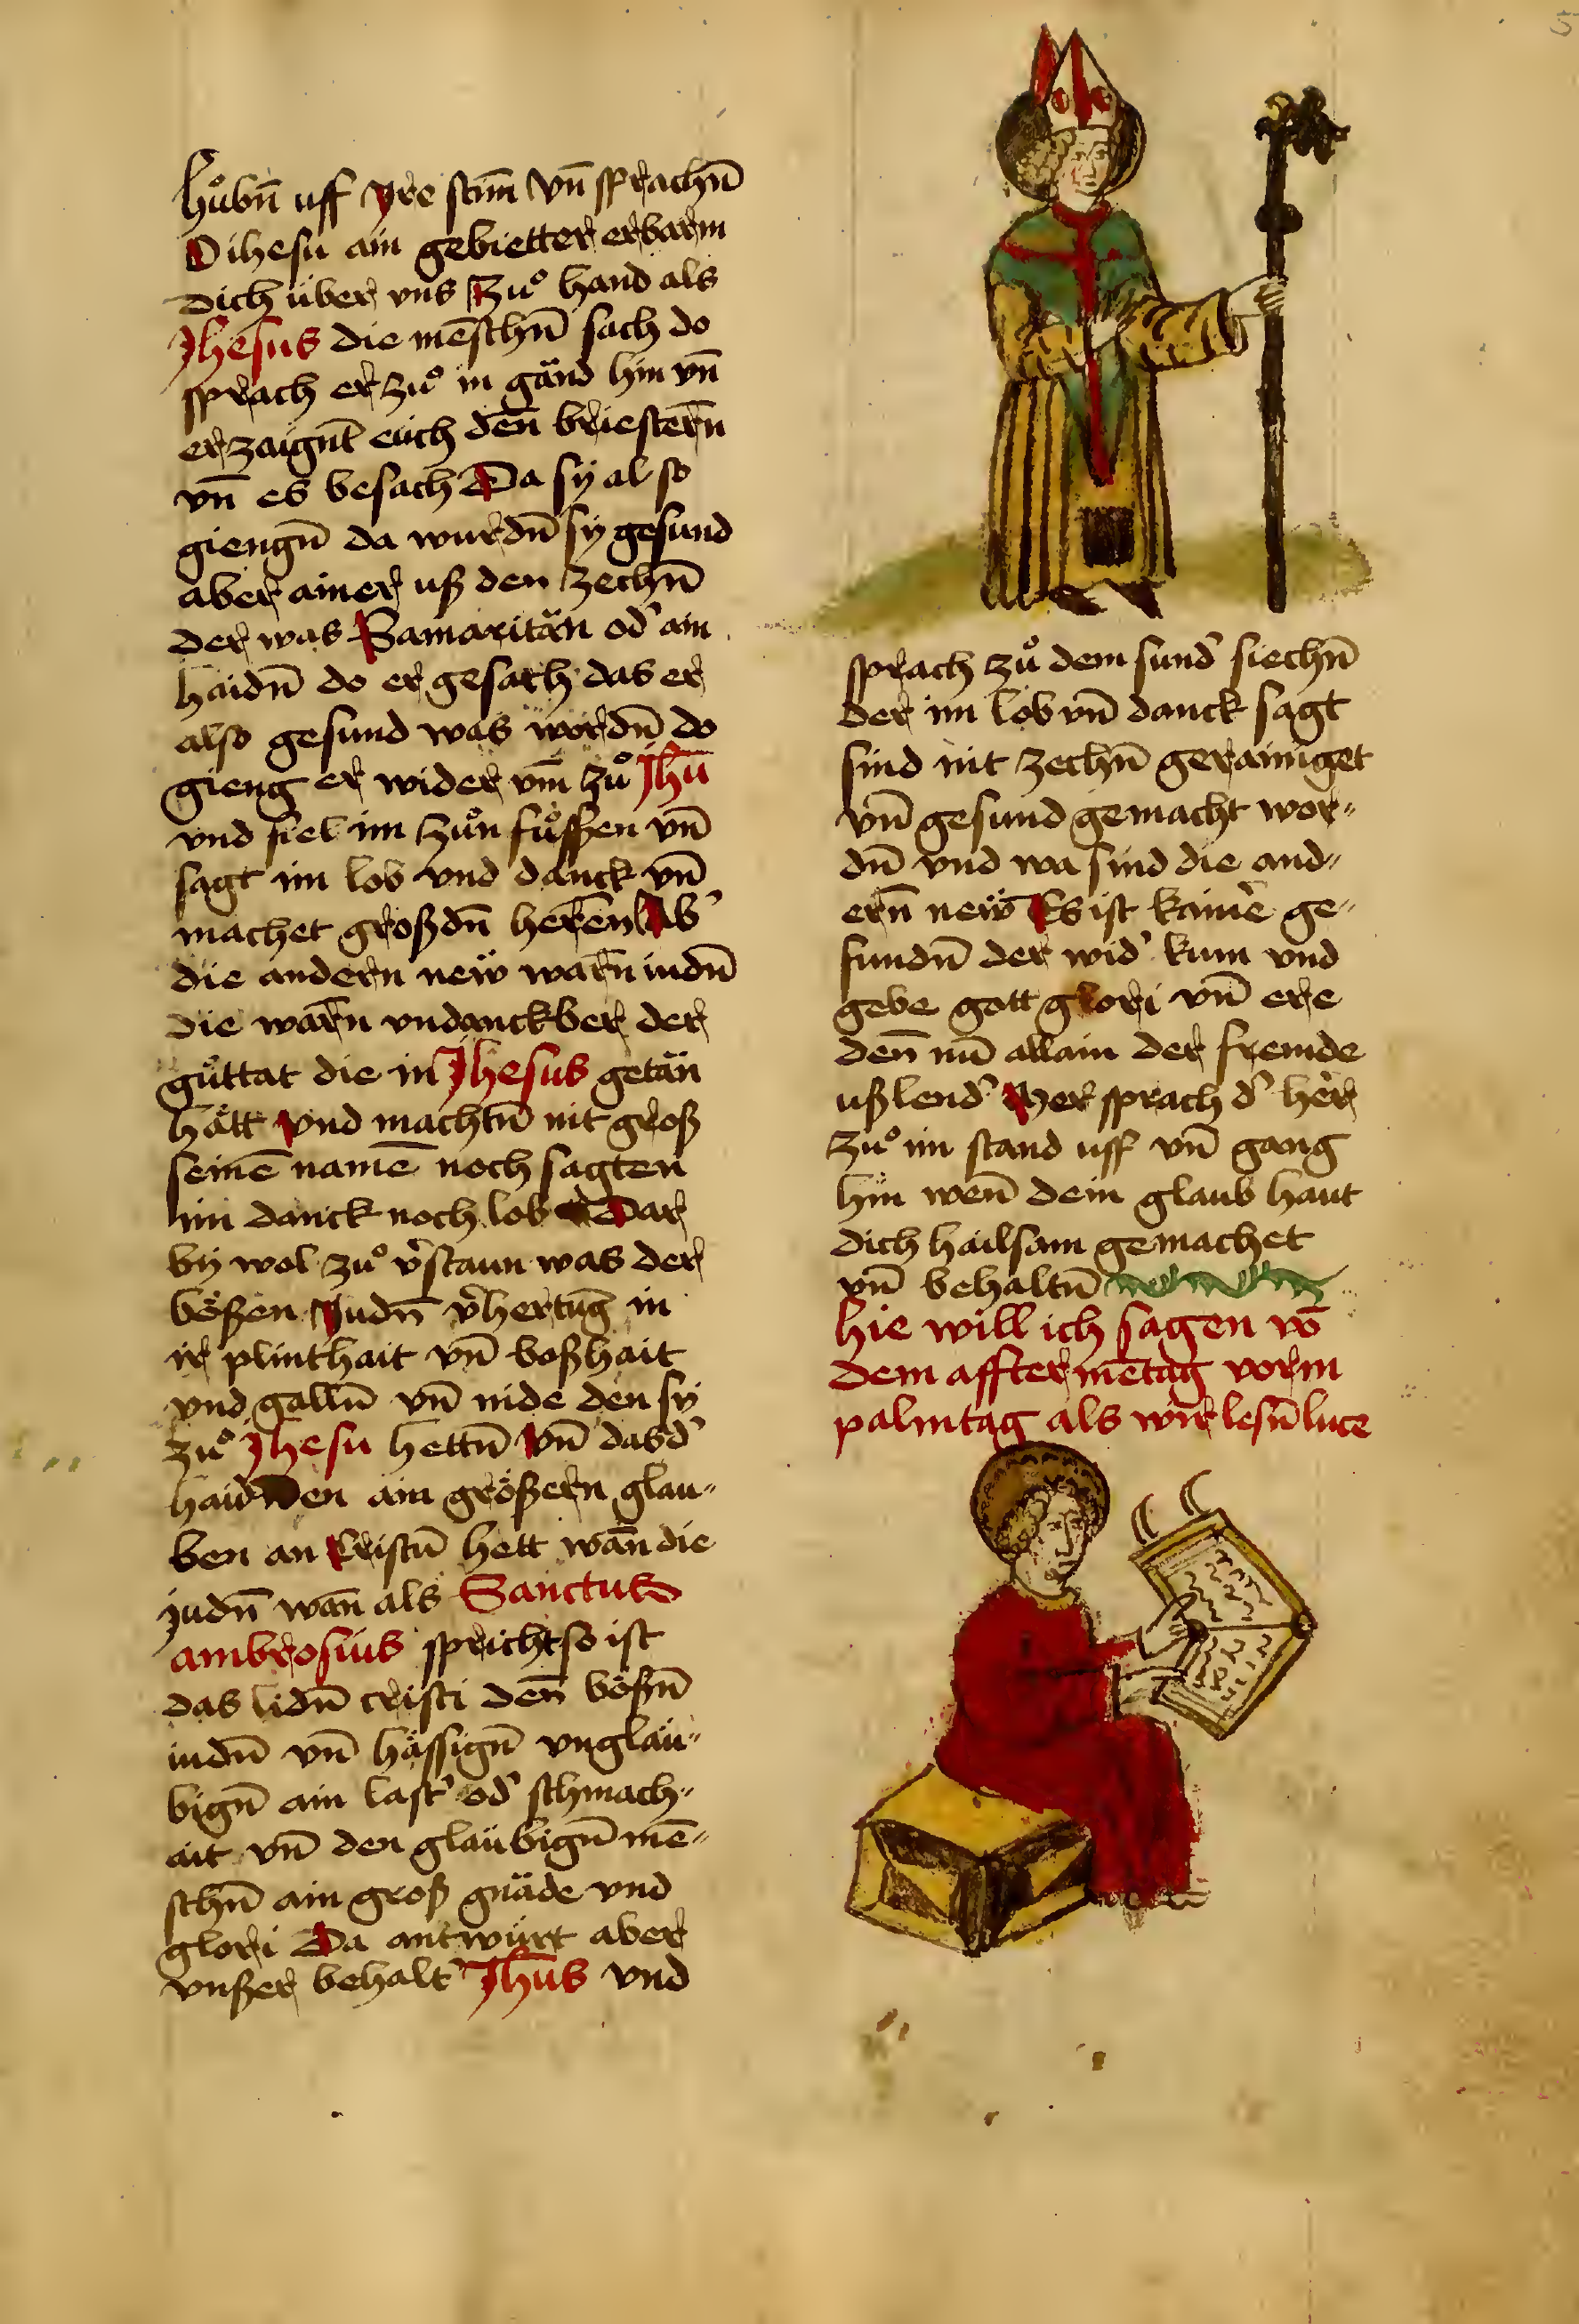 hůbn̄ uff yre stim̄ vn̄ sprachn̄
O ihesu ain gebietter erbarm
dich über vns Zuͦ hand als
Jhesus die mēschn̄ sach do
sprach er zuͦ in gänd hin vn̄
erzaignt̄ eüch den̄ briestern̄
vn̄ es besach Da sÿ al so
giengn̄ da wurdn̄ sÿ gesund
aber ainer uß den zechn̄
der was Samaritän od' ain
haidn̄ do er gesach das er
also gesund was wordn̄ do
gieng er wider vm̄ zuͦ Jhū
vnd fiel im zuͦn fuͦssen vn̄
sagt im lob vnd danck vn̄
machet groß dn̄ heren̄ Ab'
die andern new̎ warn̄ iudn̄
die warn̄ vndanckber der
guͦttat die in Jhesus getän
hätt vnd machtn̄ nit groß
seinē namē noch sagten
im danck noch lob Dar
by wol zuͦ v'staun was der
bößen Judn̄ v'hertūg in
ir plinthait vn̄ boßhait
vnd galln̄ vn̄ nide den sy
zuͦ Jhesu hettn̄ Vn̄ das d'
haidnen ain größern glau„
ben an Cristū hett wan̄ die
judn̄ wan̄ als Sanctus
ambrosius spricht so ist
das lidn̄ cristi den̄ bößn̄
iudn̄ vn̄ hässign̄ vngläu„
bign̄ ain last' od' schmach„
ait vn̄ den gläubign̄ mē„
schn̄ ain groß gnäde vnd
glori Da antwürt aber
vnßer behalt' Jhūs vnd
sprach zuͦ dem sund' siechn̄
der im lob vn̄ danck sagt
sind nit zechn̄ gerainiget
vn̄ gesund gemacht wor„
dn̄ vnd wa sind die and„
ern̄ new̎ Es ist kainer ge„
fundn̄ der wid' kum vnd
gebe gott glori vn̄ ere
den̄ nū allain der fremde
ußlend' sprach d' her
zuͦ im stand uff vn̄ gang
hin wen̄ dein glaub haut
dich hailsam gemachet
vn̄ behaltn̄
hie will ich sagen vō
dem afftermētag vorm
palmtag als wir lesn̄ luce